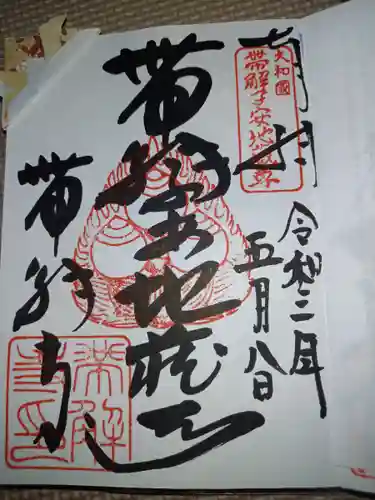 奉拝
大和國
帯解子安地蔵尊
令和二年
五月八日
帯解子安地蔵尊
帯解寺
帯解
寺印